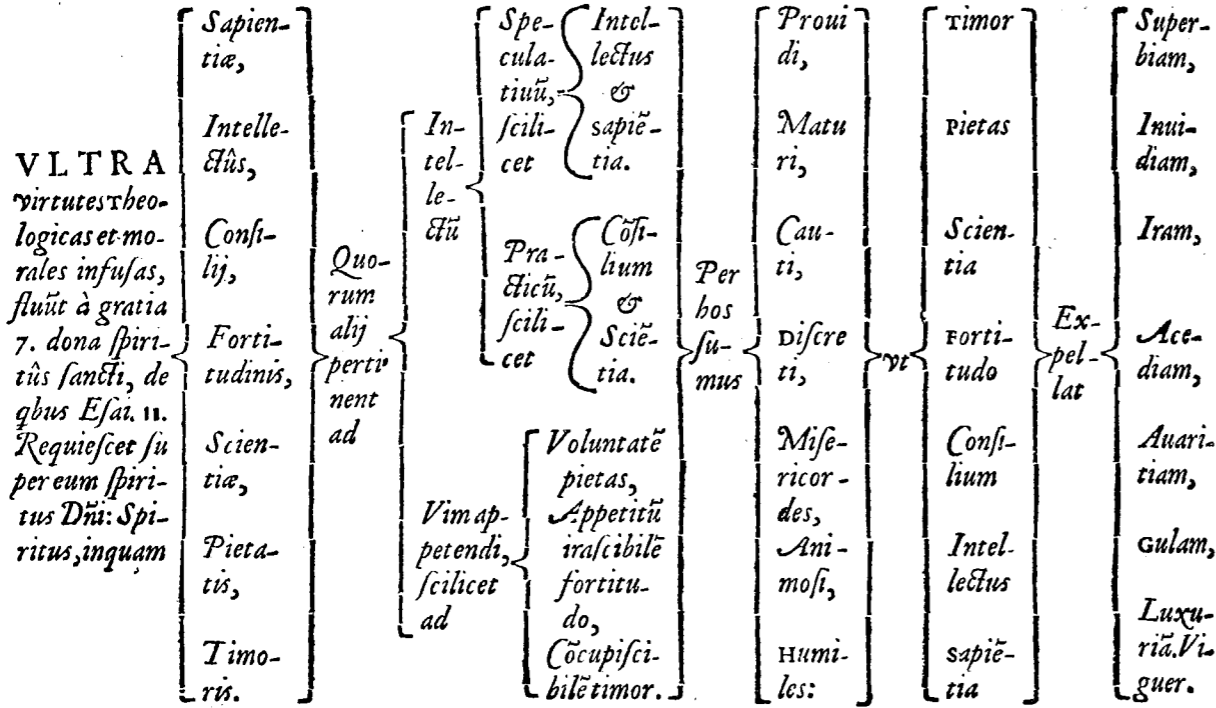 VLTRA
virtutes Theo-
logicas et mo-
rales infuſas,
fluũt à gratia
7. dona ſpiri-
tûs ſancti, de
qbus Eſai. 11.
Requieſcet ſu
per eum ſpiri-
tus Dñi: Spi-
ritus, inquam
Sapien-
tiæ,
Intelle-
ctûs,
Conſi-
lij,
Forti-
tudinis,
Scien-
tiæ,
Pieta-
tis,
Timo-
ris.
Quo-
rum
alij
perti-
nent
ad
In-
tel-
le-
ctũ
Spe-
cula-
tiuũ,
ſcili-
cet
Intel-
lectus
&
sapiẽ-
tia.
Pra-
cticũ,
ſcili-
cet
Cõſi-
lium
&
Sciẽ-
tia.
Vim ap-
petendi,
ſcilicet
ad
Voluntatẽ
pietas,
Appetitũ
iraſcibilẽ
fortitu-
do,
Cõcupiſci-
bilẽ timor.
Per
hos
ſu-
mus
Proui
di,
Matu
ri,
Cau-
ti,
Diſcre
ti,
Miſe-
ricor-
des,
Ani-
moſi,
Humi-
les:
vt
Timor
Pietas
Scien-
tia
Forti-
tudo
Conſi-
lium
Intel-
lectus
sapiẽ-
tia
Ex-
pel-
lat
Super-
biam,
Inui-
diam,
Iram,
Ace-
diam,
Auari-
tiam,
Gulam,
Luxu-
riã. Vi-
guer.